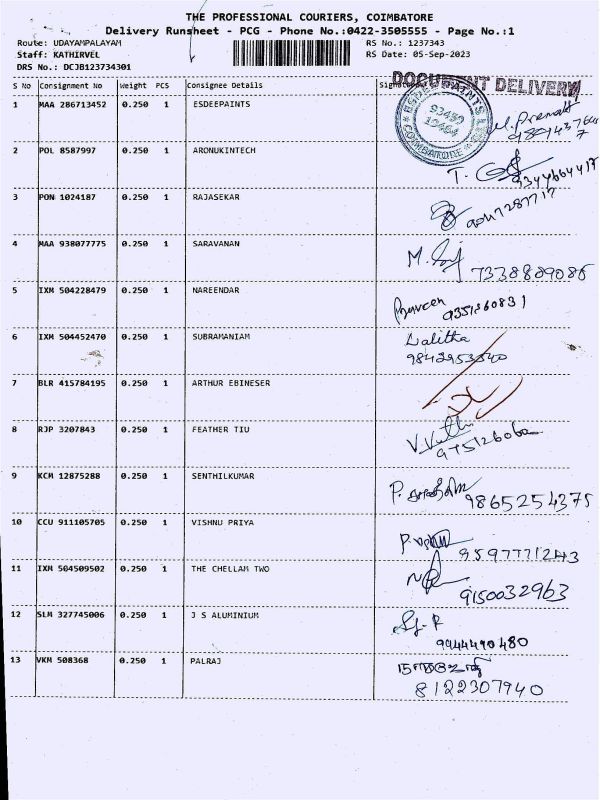 THE PROFESSIONAL COURIERS, COIMBATORE
Delivery Runsheet - PCG - Phone No.:0422-3505555 - Page No.:1
Route: UDAYAMPALAYAM RS No.: 1237343
Staff: KATHIRVEL RS Date: 05-Sep-2023
DRS No.: DCJB123734301
DOCUMENT DELIVERY
S No Consignment No Weight PCS Consignee Details
1 MAA 286713452 0.250 1 ESDEEPAINTS
COIMBATORE
2 POL 8587997 0.250 1 ARONUKINTECH
9344664417
3 PON 1024187 0.250 1 RAJASEKAR
4 MAA 938077775 0.250 1 SARAVANAN
7338889086
5 IXM 504228479 0.250 1 NAREENDAR
Praveen
6 IXM 504452470 0.250 1 SUBRAMANIAM Lalitha
9842953540
7 BLR 415784195 0.250 1 ARTHUR EBINESER
8 RJP 3207843 0.250 1 FEATHER TIU
9 KCM 12875288 0.250 1 SENTHILKUMAR
9865254375
10 CCU 911105705 0.250 1 VISHNU PRIYA
9597771243
11 IXM 504509502 0.250 1 THE CHELLAM TWO
9150032963
12 SLM 327745006 0.250 1 J S ALUMINIUM
9944490480
13 VKM 508368 0.250 1 PALRAJ
8122307940